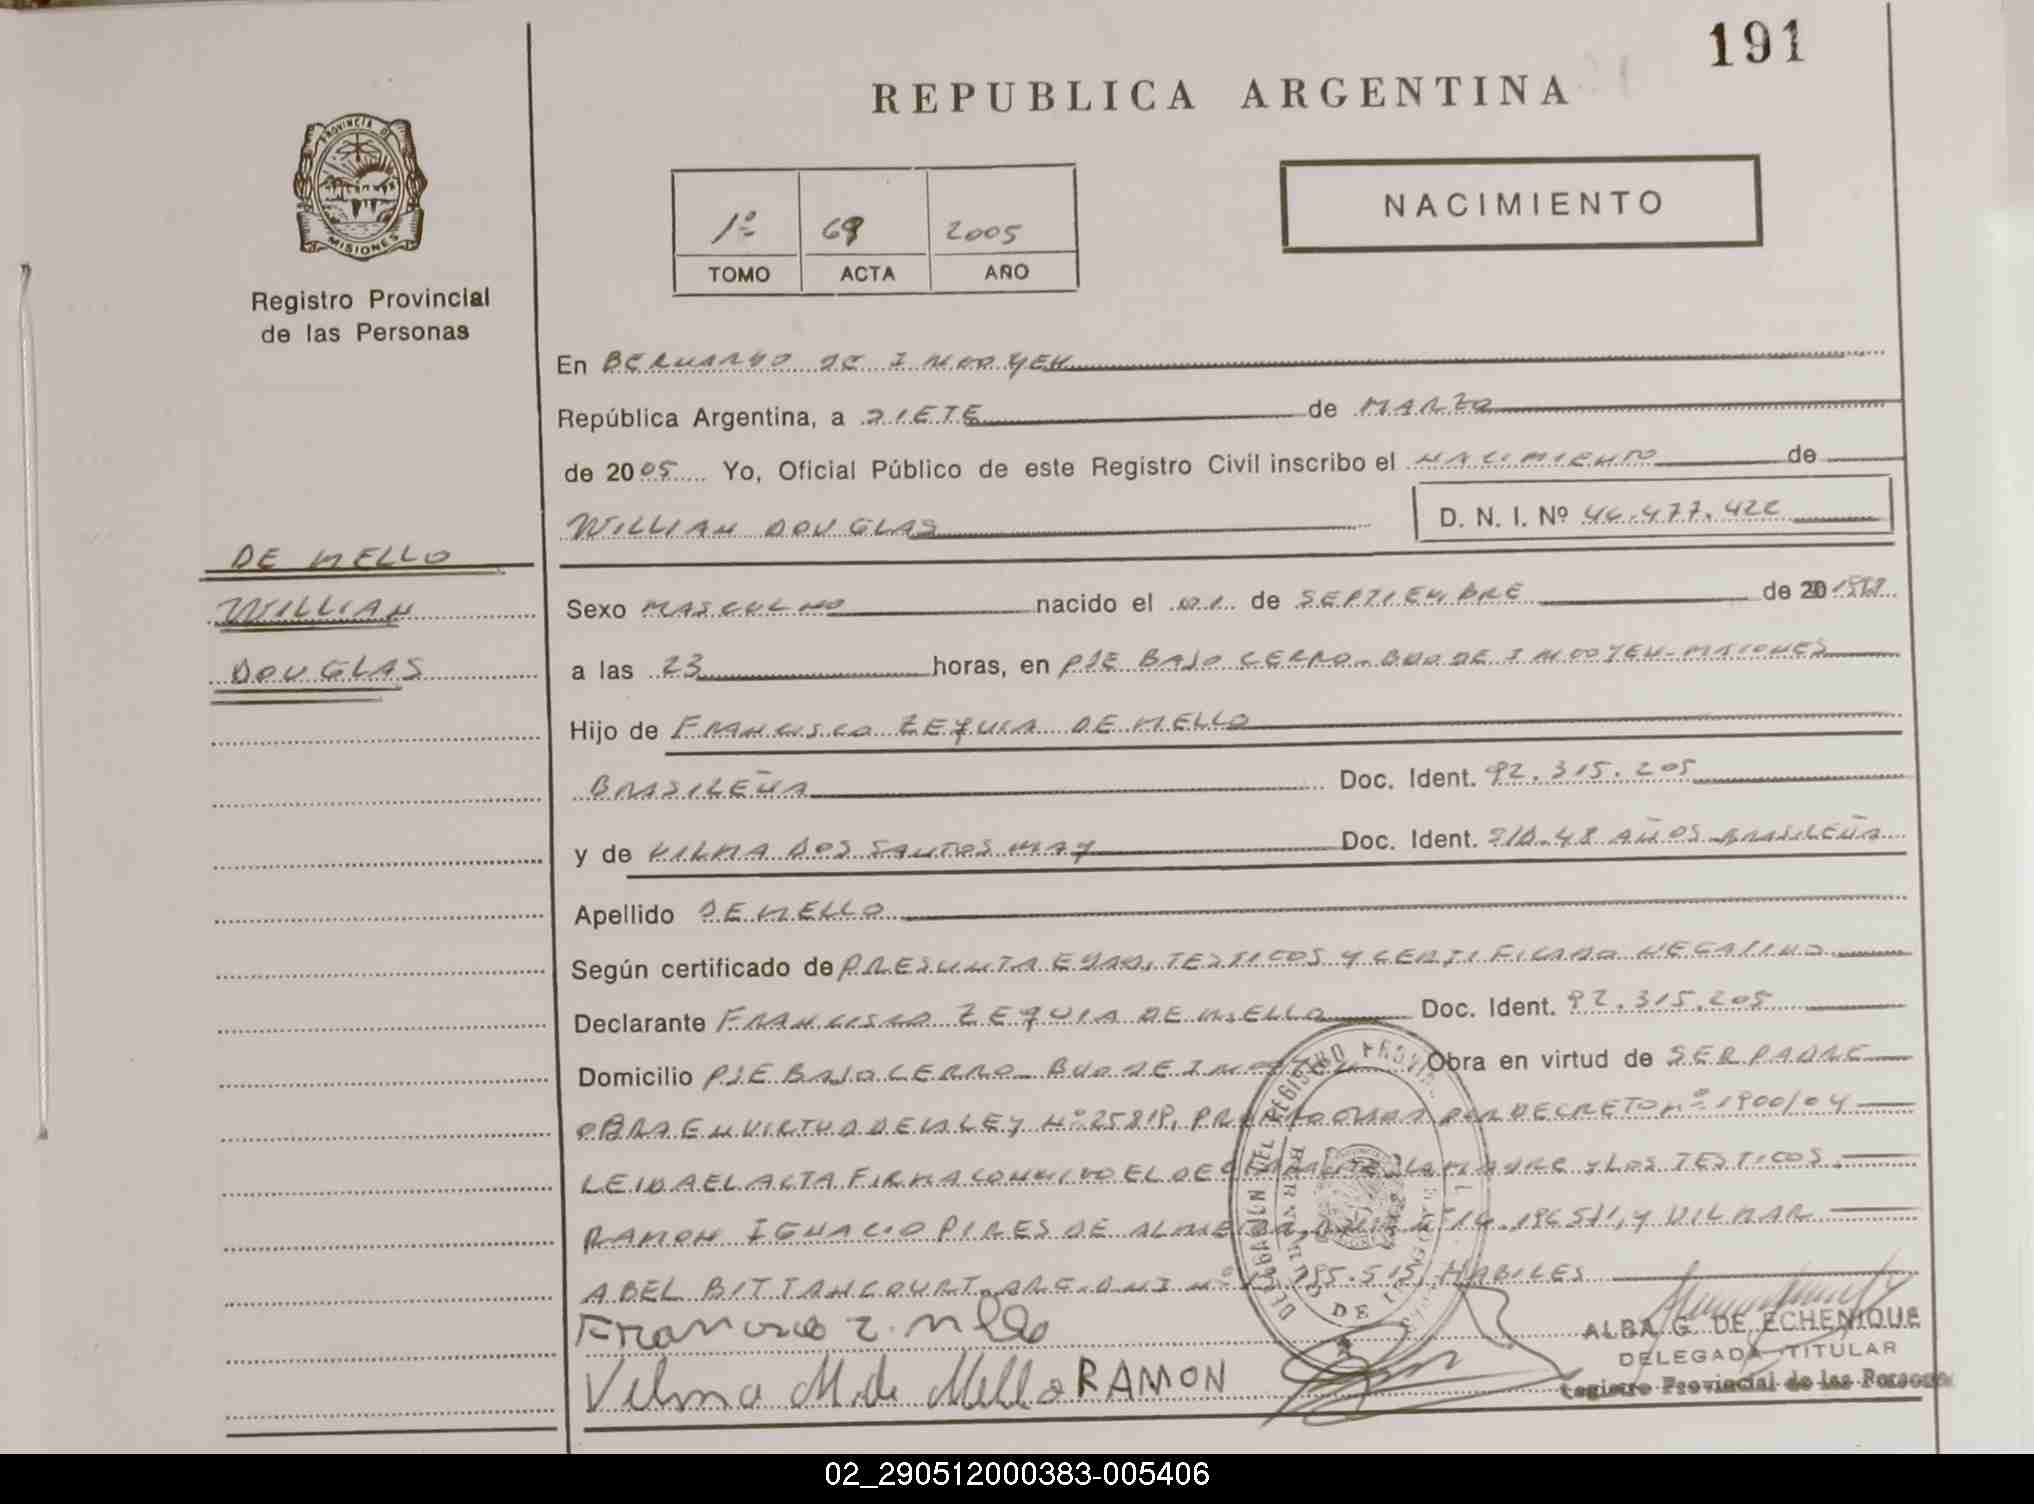 191
REPUBLICA ARGENTINA
PROVINCIA DE
MISIONES
Registro Provincial
de las Personas
NACIMIENTO
1º 69 2005
TOMO ACTA AÑO
En BERNARDO DE IRIGOYEN
República Argentina, a SIETE de MARZO
de 2005 Yo, Oficial Público de este Registro Civil inscribo el NACIMIENTO de
WILLIAN DOUGLAS D. N. I. Nº 46.477.422
DE MELLO
WILLIAN
DOUGLAS
Sexo MASCULINO nacido el 01 de SEPTIEMBRE de 20
a las 23 horas, en PJE BAJO CERRO - BDO DE IRIGOYEN - MISIONES
Hijo de FRANCISCO ZEQUIA DE MELLO
BRASILEÑA Doc. Ident. 92.315.205
y de VILMA DOS SANTOS MAY Doc. Ident. S/D. 48 AÑOS BRASILEÑA
Apellido DE MELLO
Según certificado de PRESUNTA EDAD, TESTIGOS Y CERTIFICADO NEGATIVO
Declarante FRANCISCO ZEQUIA DE MELLO Doc. Ident. 92.315.205
Domicilio PJE BAJO CERRO - BDO DE Obra en virtud de SER PADRE
OBRA EN VIRTUD DE LA LEY Nº 25819, POR DECRETO Nº 1900/04
LEIDA EL ACTA FIRMA CONMIGO EL LA MADRE Y LOS TESTIGOS
RAMON IGNACIO PIRES DE Y VILMAR
ABEL BITTANCOURT ARG. DNI Nº HABILES
Francisco Z. Mello
Vilma M. de Mello RAMON
DELEGACION DEL REGISTRO
ALBA G. DE ECHENIQUE
DELEGADA TITULAR
Registro Provincial de las Personas
02_290512000383-005406